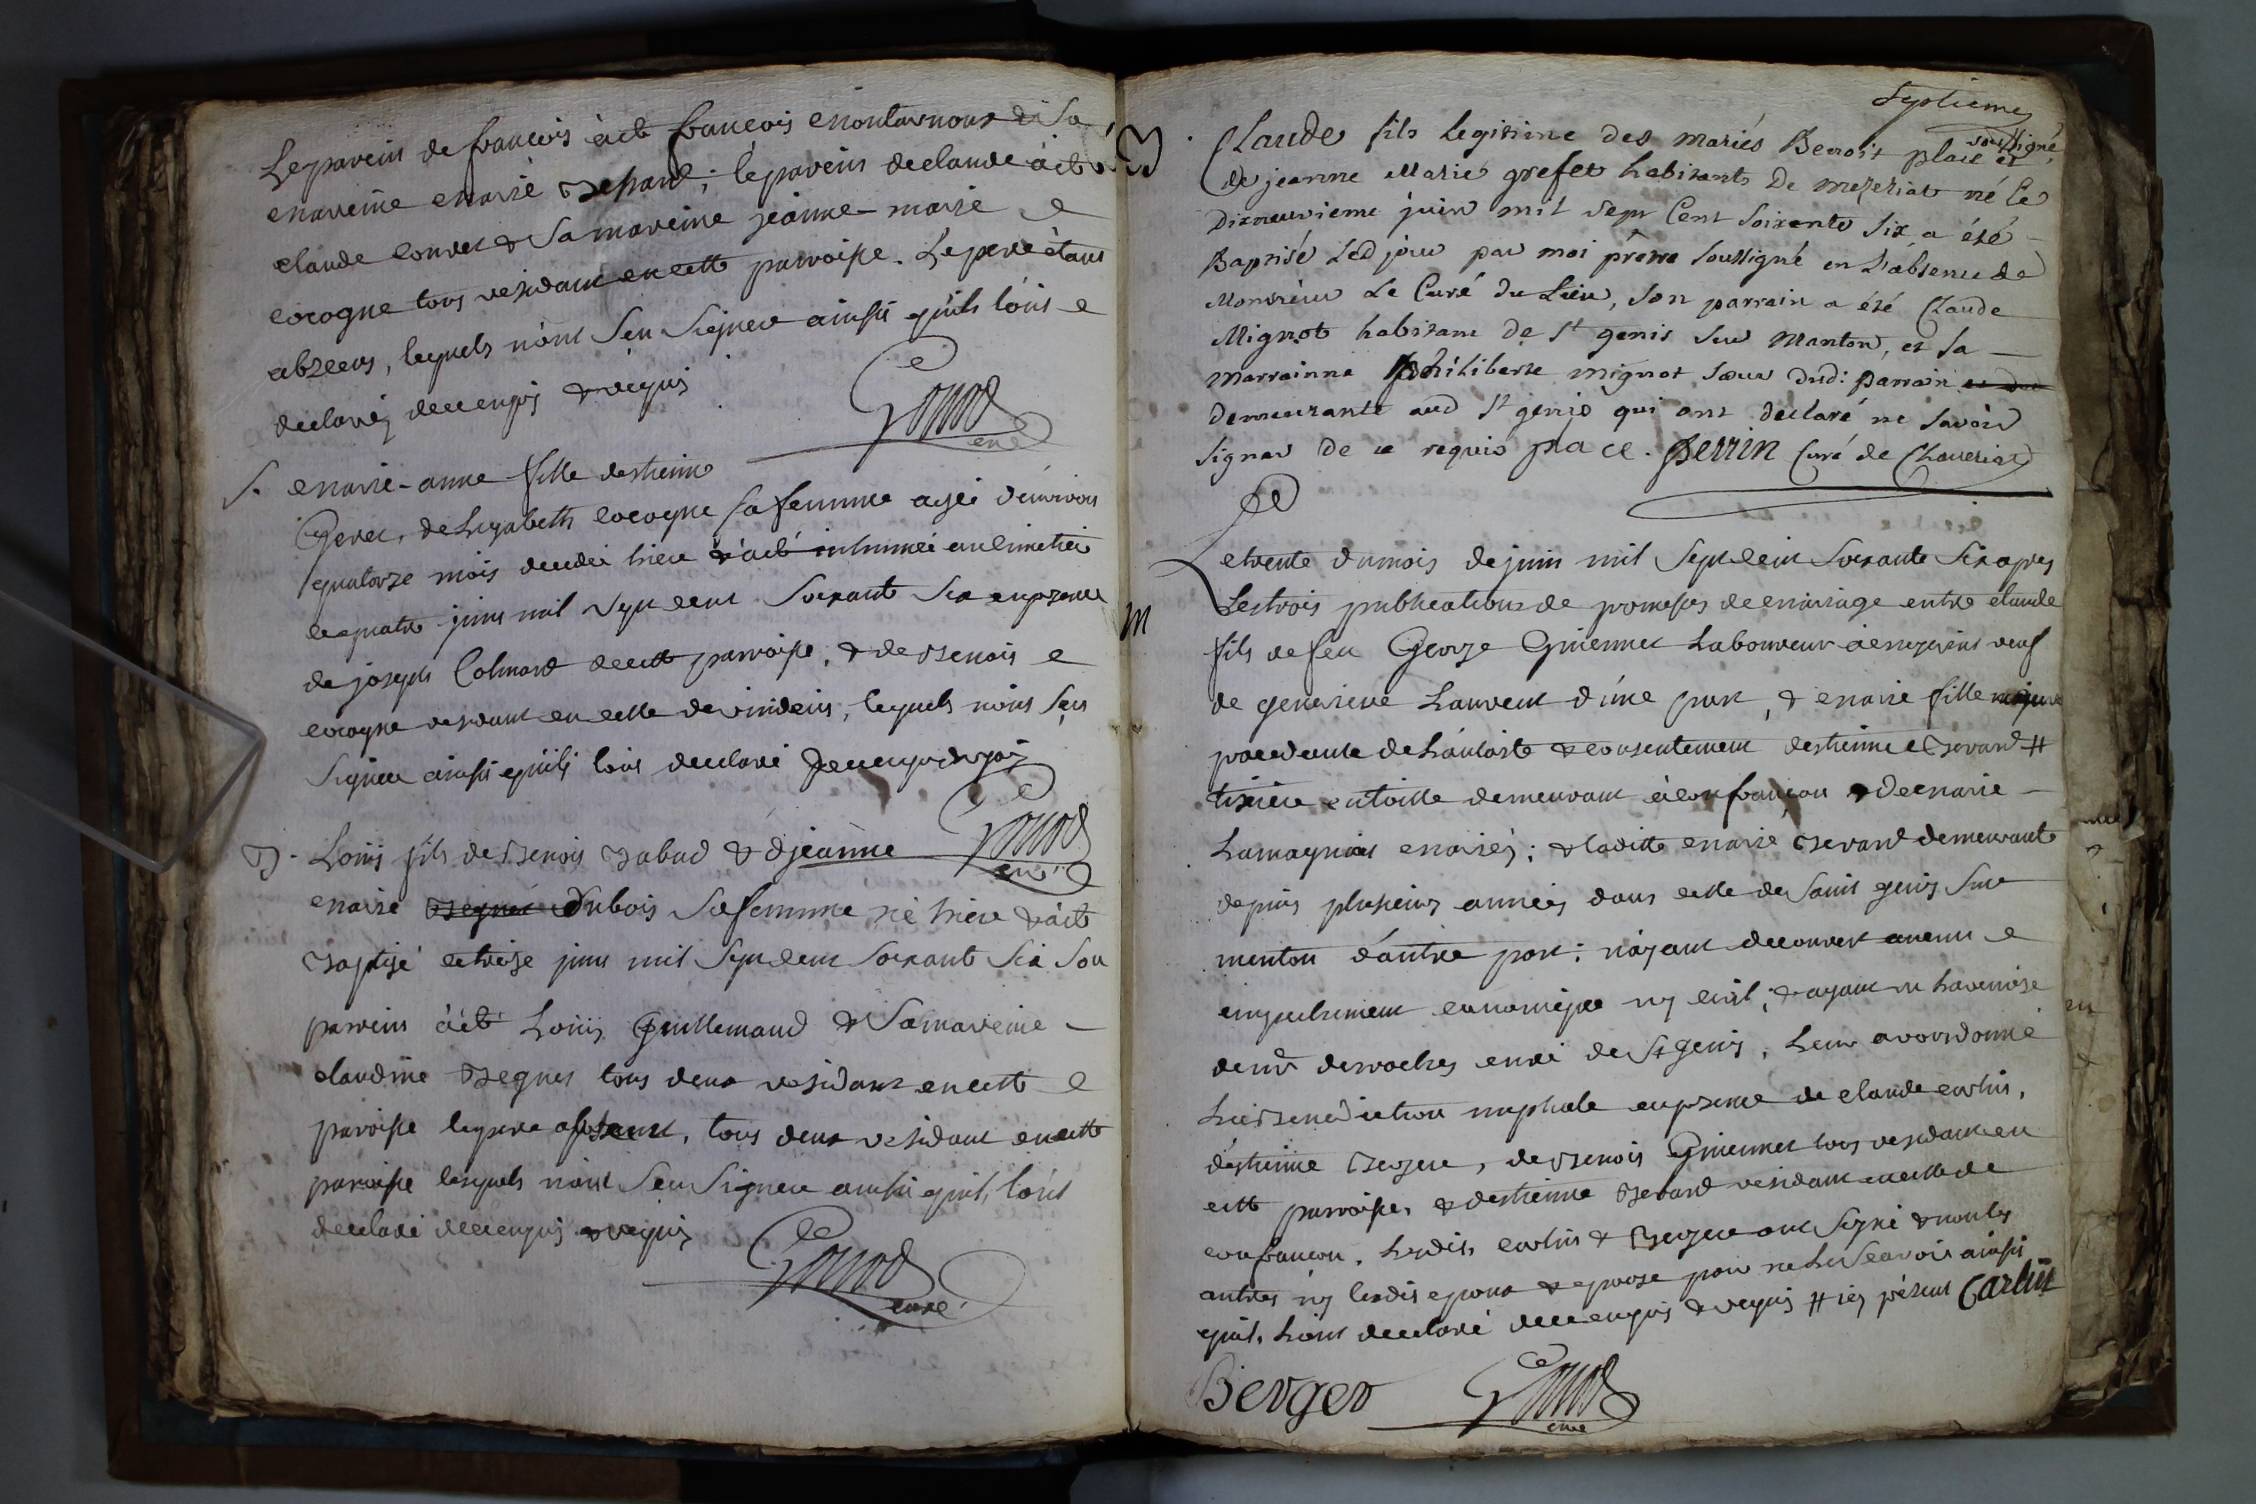 Le parein de francois à été francois montarnoux & sa
mareine marie ; le parein de claude à été
claude Convert & sa mareine jeanne-marie
cocogne tous residant en cette parroisse. Le pere étant
absent, lequels n'ont sçu signer ainsi qu'ils l'ont
declaréz de ce enquis & requis
Gonod
curé
S. marie-anne fille destienne
Geret, de Lizabeth cocogne sa femme agée d'environ
quatorze mois decedée hier & a été inhumée au cimetiere
ce quatre juin mil sept cent soixante six en presence
de joseph Colmard de cette parroisse, & de Benois
cocogne residant en celle de vindeins, lequels n'ont sçu
signer ainsi qu'ils l'ont declaré de ce enquis & requis
Gonod
curé
B. Louis fils de Benois Babad & de jeanne
marie Begnet Dubois sa femme né hier & a été
Baptisé ce treize juin mil sept cent soixante six son
parrein à été Louis Guillemaud & sa mareine
claudine Begnet tous deux residans en cette
paroisse le pere absent, tous deux residant en cette
paroisse lesquels n'ont sçu signer ainsi qu'ils l'ont
declaré de ce enquis & requis
Gonod
curé
septieme
B. Claude fils legitime des mariés Benoit place soussigné, et
de jeanne Marie grefet habitants De mezeriat né le
Dixneuvieme juin mil sept Cent soixante six a été
Baptisé led jour par moi prêtre soussigné en l'absence de
Monsieur Le Curé du Lieu, son parrain a été Claude
Mignot habitant de St genis sur Manton, et sa
marrainne philiberte mignot sœur dud: parrain et du
demeurante aud St genis qui ont declaré ne savoir
signer de ce requis place. perrin Curé de Chaveriat
M
Le trente du mois de juin mil sept cent soixante six apres
Les trois publications de promesses de mariage entre claude
fils de feu George Guiennet Laboureur à mezeriat veuf
de genevieve Laurent d'une part, & marie fille majeure
procedante de l'autorité & consentement destienne Bevand #
tixier en toille demeurant à confrançon & de marie
Lamagnias mariés; & laditte marie Bevand demeurante
depuis plusieurs années dans celle de Saint genis sur
menton d'autre part; n'ayant decouvert aucun
empechement canonique ny civil; & ayant vu la remise
de mr desroches curé de St genis, leur avons donné
la Benediction nuptiale en presence de claude carlin,
d'estienne Berger, de Benois Guiennet tous residant en
cette parroisse, & destienne Bevand residant en celle de
confrancon. Lesdis carlin & Berger ont signé & non les
autres ny lesdis epoux & epouse pour ne le sçavoir ainsi
qu'ils l'ont declaré de ce enquis & requis # icy présent Carlin
Berger Gonod
curé